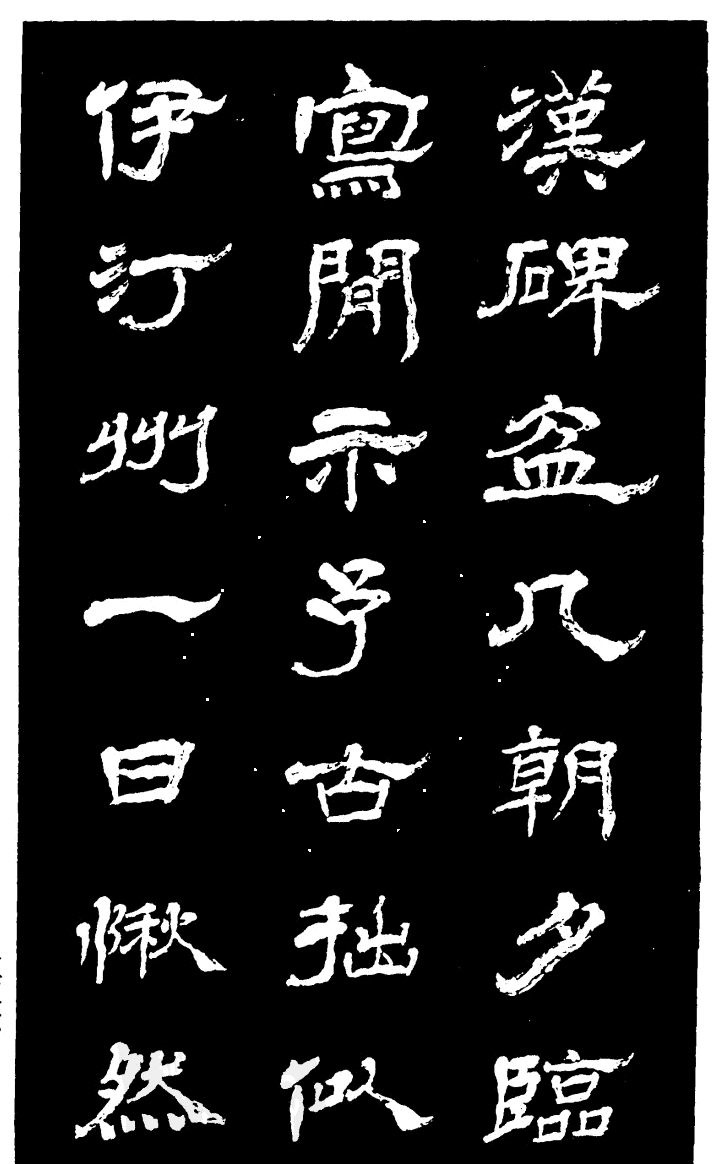 漢碑盈几朝夕臨
寫間示予古拙似
伊汀州一日愀然